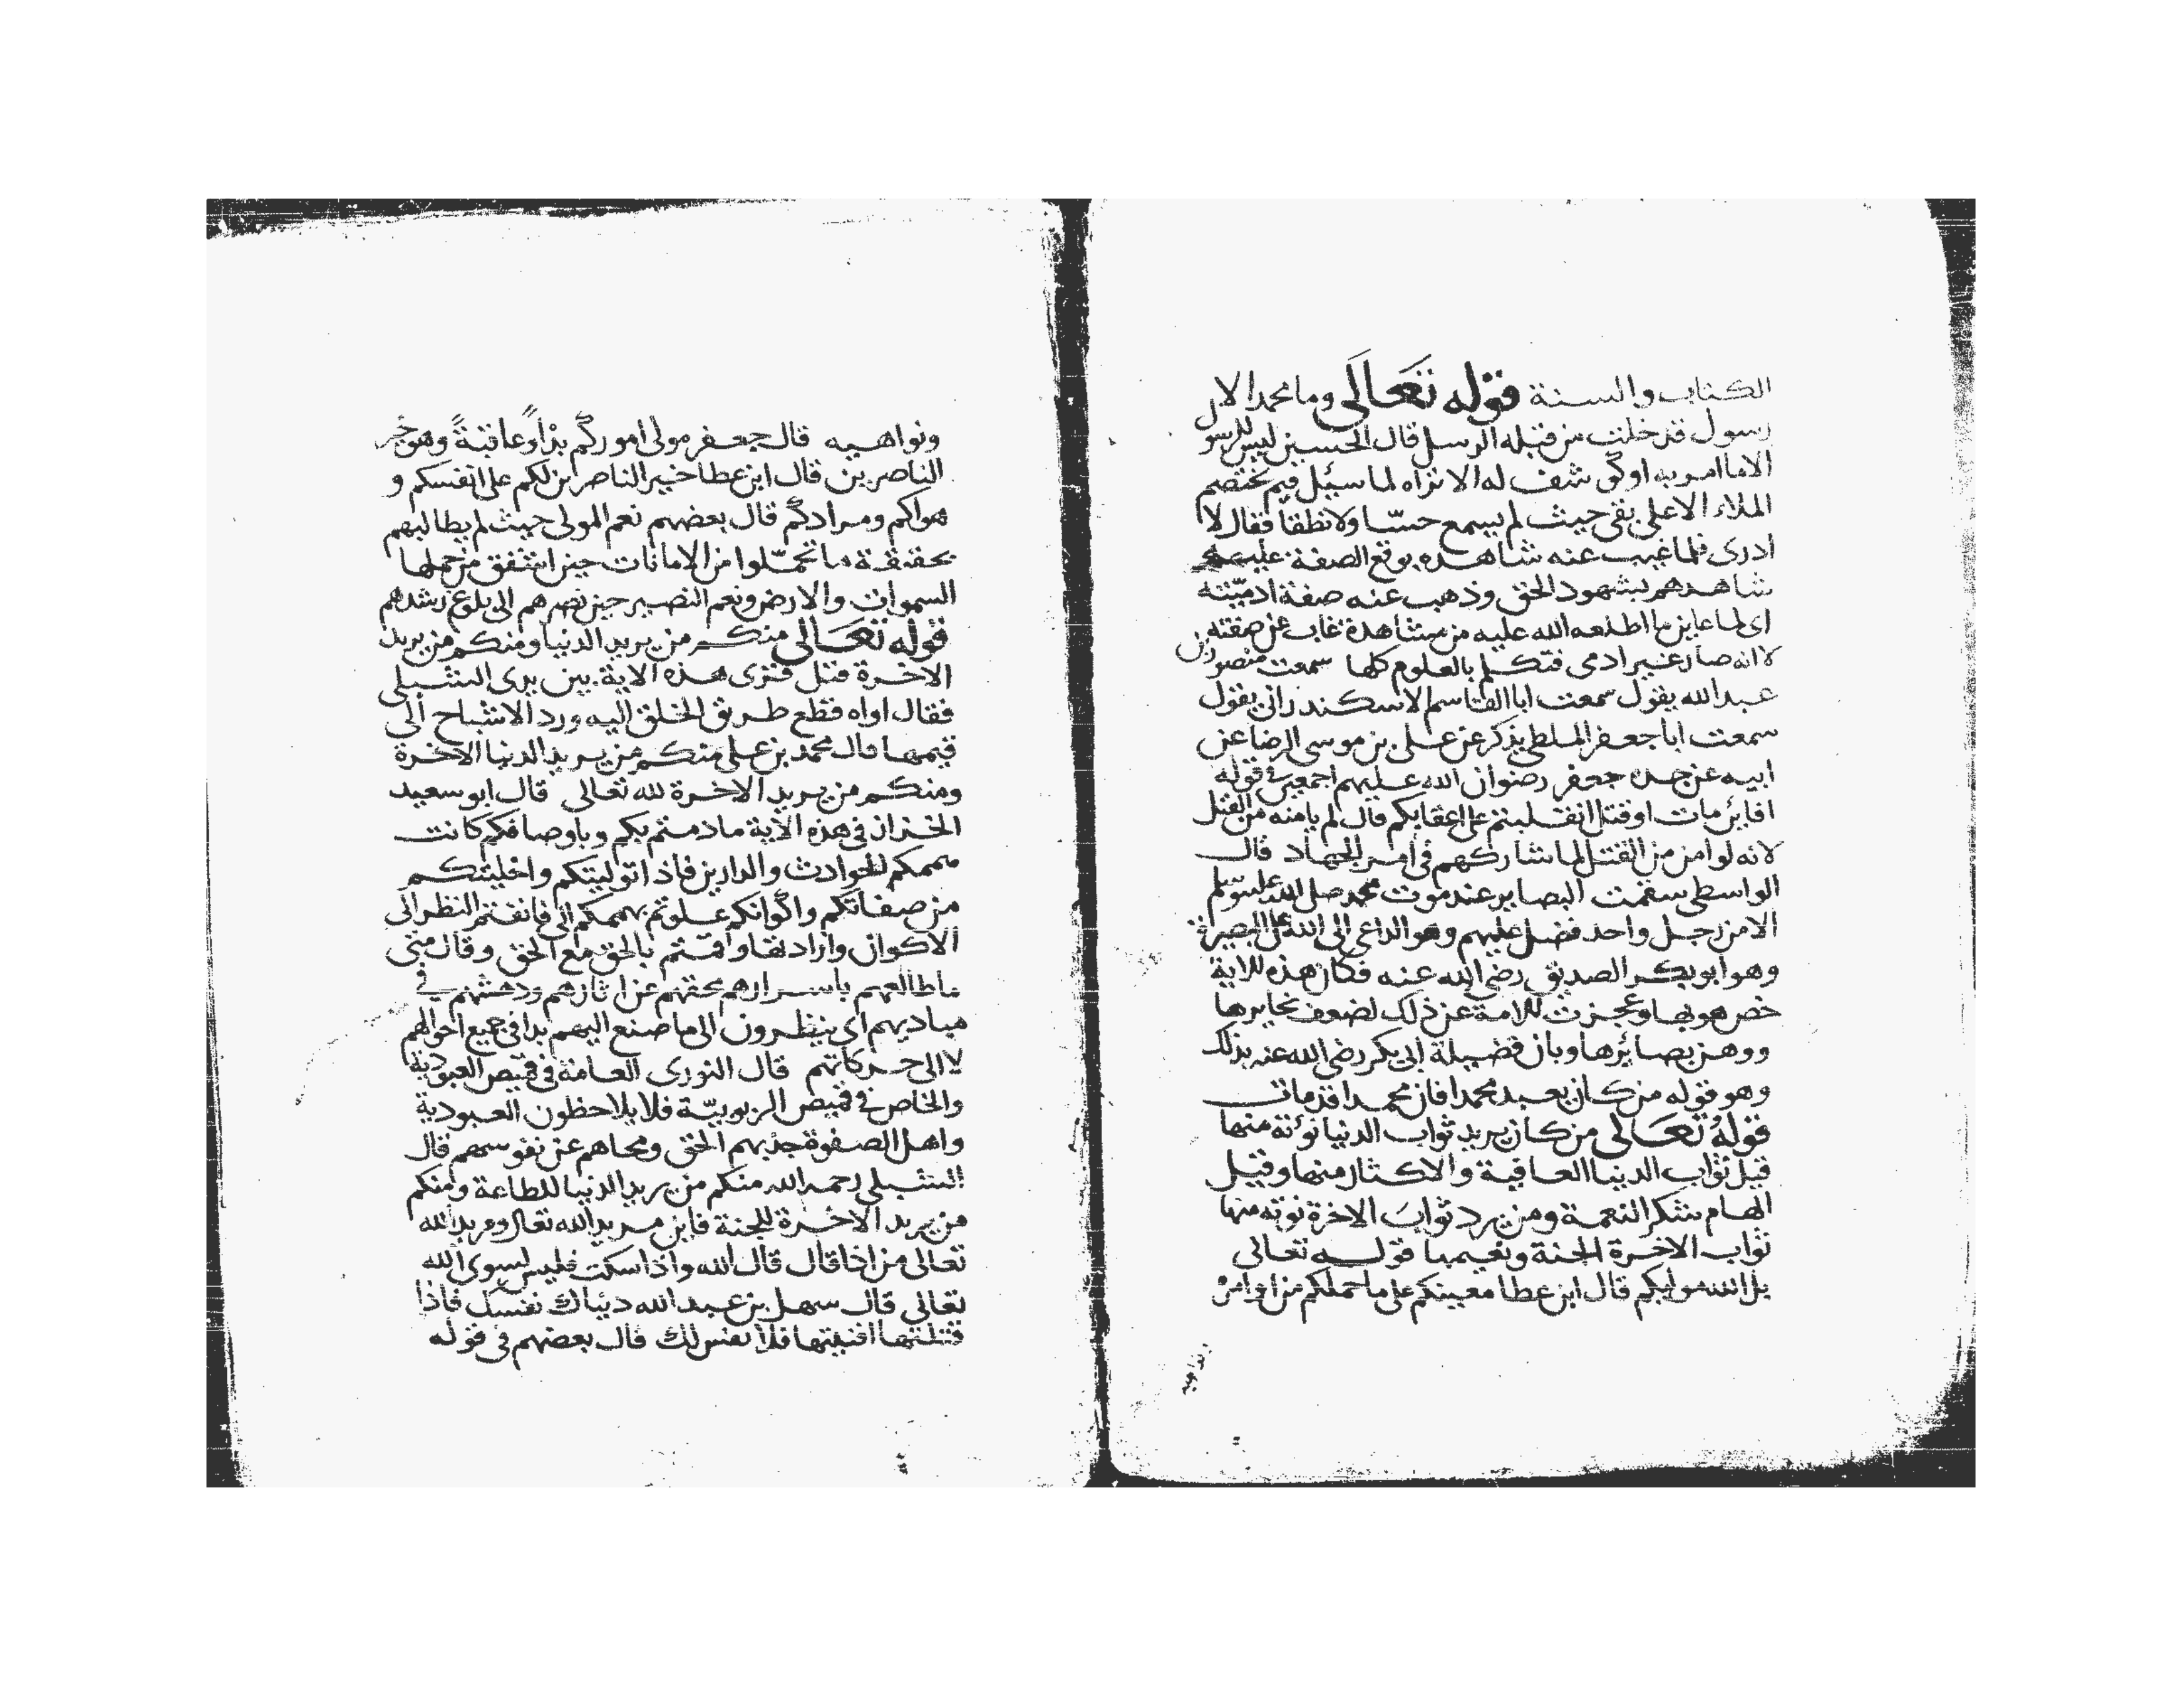 الكتاب والسنة قوله تعالى وما محمد الا
رسول قد خلت من قبله الرسل قال الحسين ليس للرسول
الا ما امر به او كوشف له الا تراه لما سئل فيم يختصم
الملاء الاعلى بقى حيث لم يسمع حسّا ولا نطقا فقال لا
ادرى فلما غيب عنه شاهده بوقع الصفة عليه
شاهدهم بشهود الحق وذهب عنه صفة ادميّته
اى لما عاين ما اطلعه الله عليه من مشاهدة غاب عن صفته
لانه صار غير ادمى فتكلم بالعلوم كلها سمعت منصور بن
عبد الله يقول سمعت ابا القاسم الاسكندرانى يقول
سمعت ابا جعفر الملطى يذكر عن على بن موسى الرضا عن
ابيه عن جده جعفر رضوان الله عليهم اجمعين فى قوله
افاين مات او قتل انقلبتم على اعقابكم قال لم يامنه من القتل
لانه لو امن من القتل لما شاركهم فى امر الجهاد قال
الواسطى سقمت البصاير عند موت محمد صلى الله عليه وسلم
الا من رجل واحد فضل عليهم وهو الداعى الى الله على البصيرة
وهو ابو بكر الصديق رضى الله عنه فكان هذه للاية
خص هو بها وعجزت للامة عن ذلك لضعف نحايرها
ووهن بصائرها وبان فضيلة ابى بكر رضى الله عنه بذلك
وهو قوله من كان يعبد محمدا فان محمدا قد مات
قوله تعالى من كان يريد ثواب الدنيا نؤته منها
قيل ثواب الدنيا العاقية والاكثار منها وقيل
الهام شكر النعمة ومن يرد ثواب الاخرة نوته منها
ثواب الاخرة الجنة ونعيمها قوله تعالى
بل الله موليكم قال ابن عطا معينكم على ما حملكم من اوامره
ونواهيه
ونواهيه قال جعفر مولى اموركم بدأً وعاقبةً وهو خير
الناصرين قال ابن عطا خير الناصرين لكم على انفسكم و
هواكم ومرادكم قال بعضهم نعم المولى حيث لم يطالبهم
بحقيقة ما تحمّلوا من الامانات حين اشفق من حملها
السموات والارض ونعم النصير حين نصرهم الى بلوغ رشدهم
قوله تعالى منكم من يريد الدنيا ومنكم من يريد
الاخرة قتل قرى هذه الاية بين يدى الشبلى
فقال اواه قطع طريق الخلق اليه ورد الاشباح الى
قيمها قال محمد بن على منكم من يريد الدنيا الاخرة
ومنكم من يريد الاخرة لله تعالى قال ابو سعيد
الخزاز فى هذه الاية ما دمتم بكم وباوصافكم كانت
هممكم للحوادث والدارين فاذا توليتكم واخليتكم
من صفاتكم واكوانكم علوتم بهممكم الى فانفتم النظر الى
الاكوان وارادتها واقمتم بالحق مع الحق وقال متى
ما طالعهم باسرارهم محقهم عن اثارهم ودهشهم فى
مباديهم اى ينظرون الى ما صنع اليهم بدا فى جميع احوالهم
لا الى حركاتهم قال النورى العامة فى قميص العبودية
والخاص فى قميص الربوبيّة فلا يلاحظون العبودية
واهل الصفوة جذبهم الحق ومحاهم عن نفوسهم قال
الشبلى رحمه الله منكم من يريد الدنيا للطاعة ومنكم
من يريد الاخرة للجنة فاين مريد الله تعالى ومريد الله
تعالى من اذا قال قال الله واذا سكت فليس لسوى الله
تعالى قال سهل بن عبد الله دنياك نفسك فاذا
قتلتها افنيتها فلا نفس لك قال بعضهم فى قوله